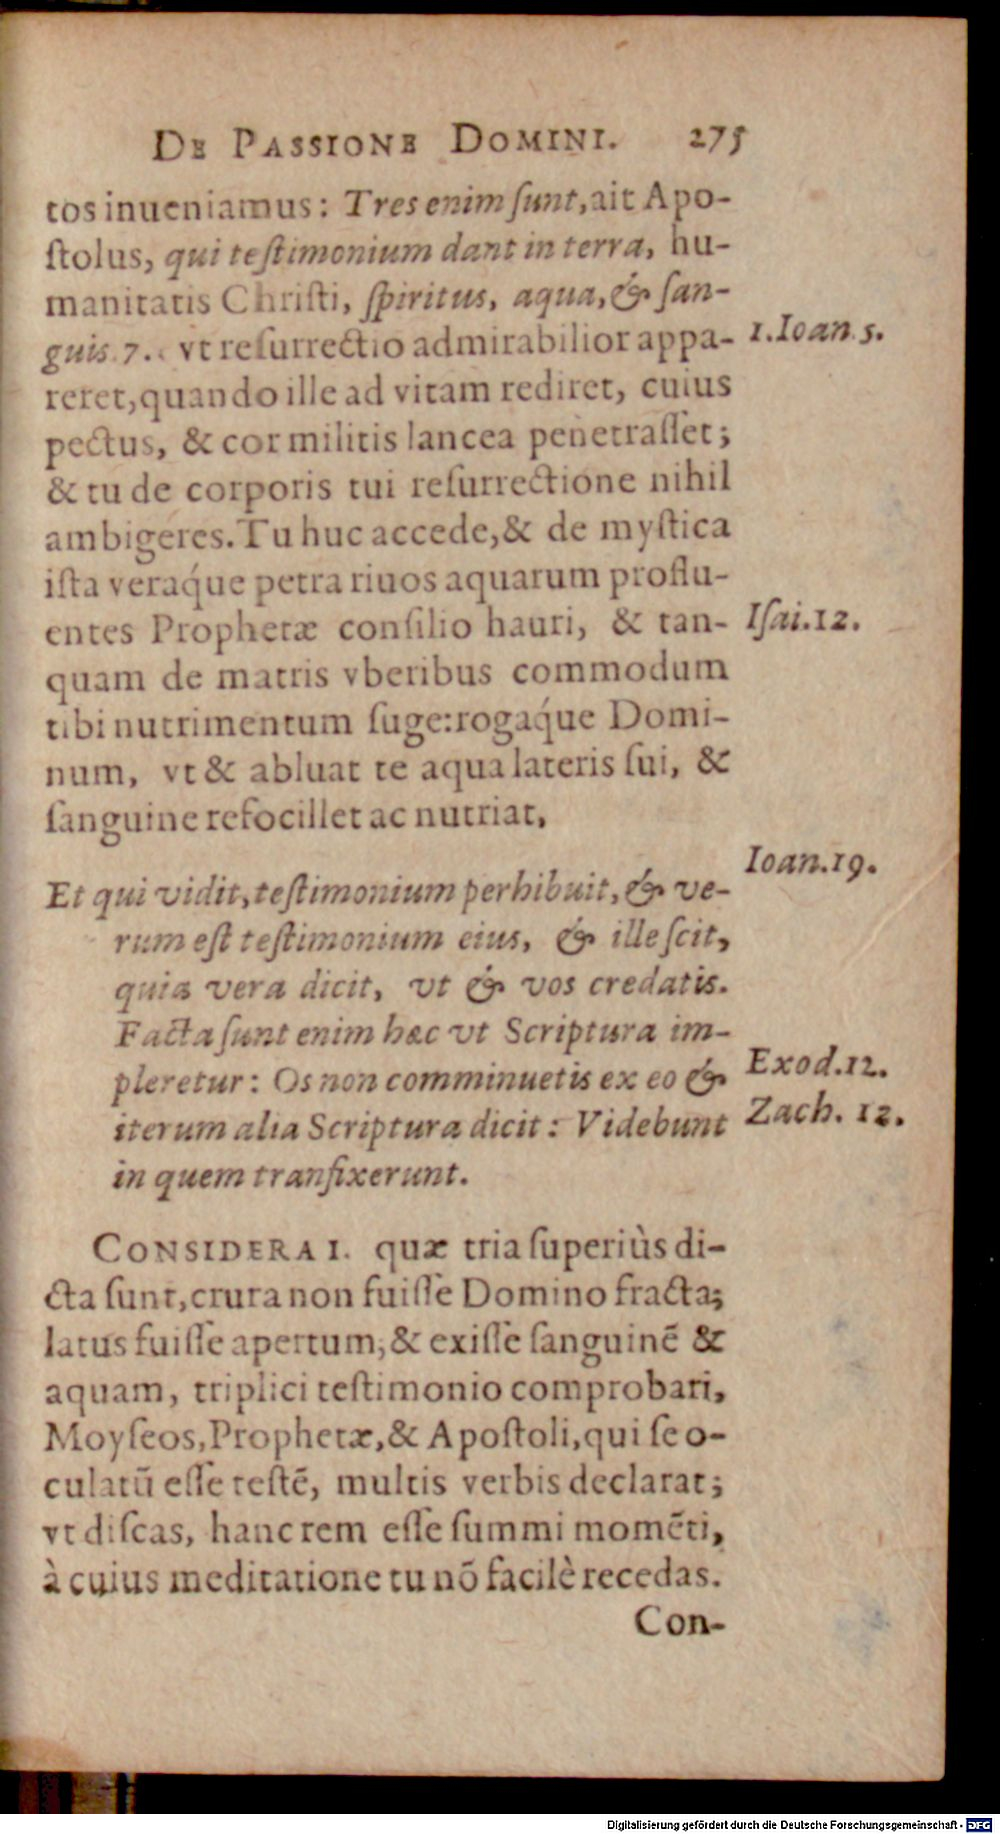 DE PASSIONE DOMINI. 275
tos inueniamus: Tres enim ſunt, ait Apo-
ſtolus, qui teſtimonium dant in terra, hu-
manitatis Chriſti, ſpiritus, aqua, & ſan-
guis. 7. vt reſurrectio admirabilior appa-
1. Ioan. 5.
reret, quando ille ad vitam rediret, cuius
pectus, & cor militis lancea penetraſſet;
& tu de corporis tui reſurrectione nihil
ambigeres. Tu huc accede, & de myſtica
iſta veraq́ue petra riuos aquarum proflu-
entes Prophetæ conſilio hauri, & tan-
Iſai. 12.
quam de matris vberibus commodum
tibi nutrimentum ſuge: rogaq́ue Domi-
num, vt & abluat te aqua lateris ſui, &
ſanguine refocillet ac nutriat.
Et qui vidit, teſtimonium perhibuit, & ve-
Ioan. 19.
rum eſt teſtimonium eius, & ille ſcit,
quia vera dicit, vt & vos credatis.
Facta ſunt enim hæc vt Scriptura im-
pleretur: Os non comminuetis ex eo &
Exod. 12.
iterum alia Scriptura dicit: Videbunt
Zach. 12.
in quem tranſixerunt.
CONSIDERA I. quæ tria ſuperiùs di-
cta ſunt, crura non fuiſſe Domino fracta;
latus fuiſſe apertum, & exiſſe ſanguinẽ &
aquam, triplici teſtimonio comprobari,
Moyſeos, Prophetæ, & Apoſtoli, qui ſe o-
culatũ eſſe teſtẽ, multis verbis declarat;
vt diſcas, hanc rem eſſe ſummi momẽti,
à cuius meditatione tu nõ facilè recedas.
Con-
Digitalisierung gefördert durch die Deutsche Forschungsgemeinschaft - DFG